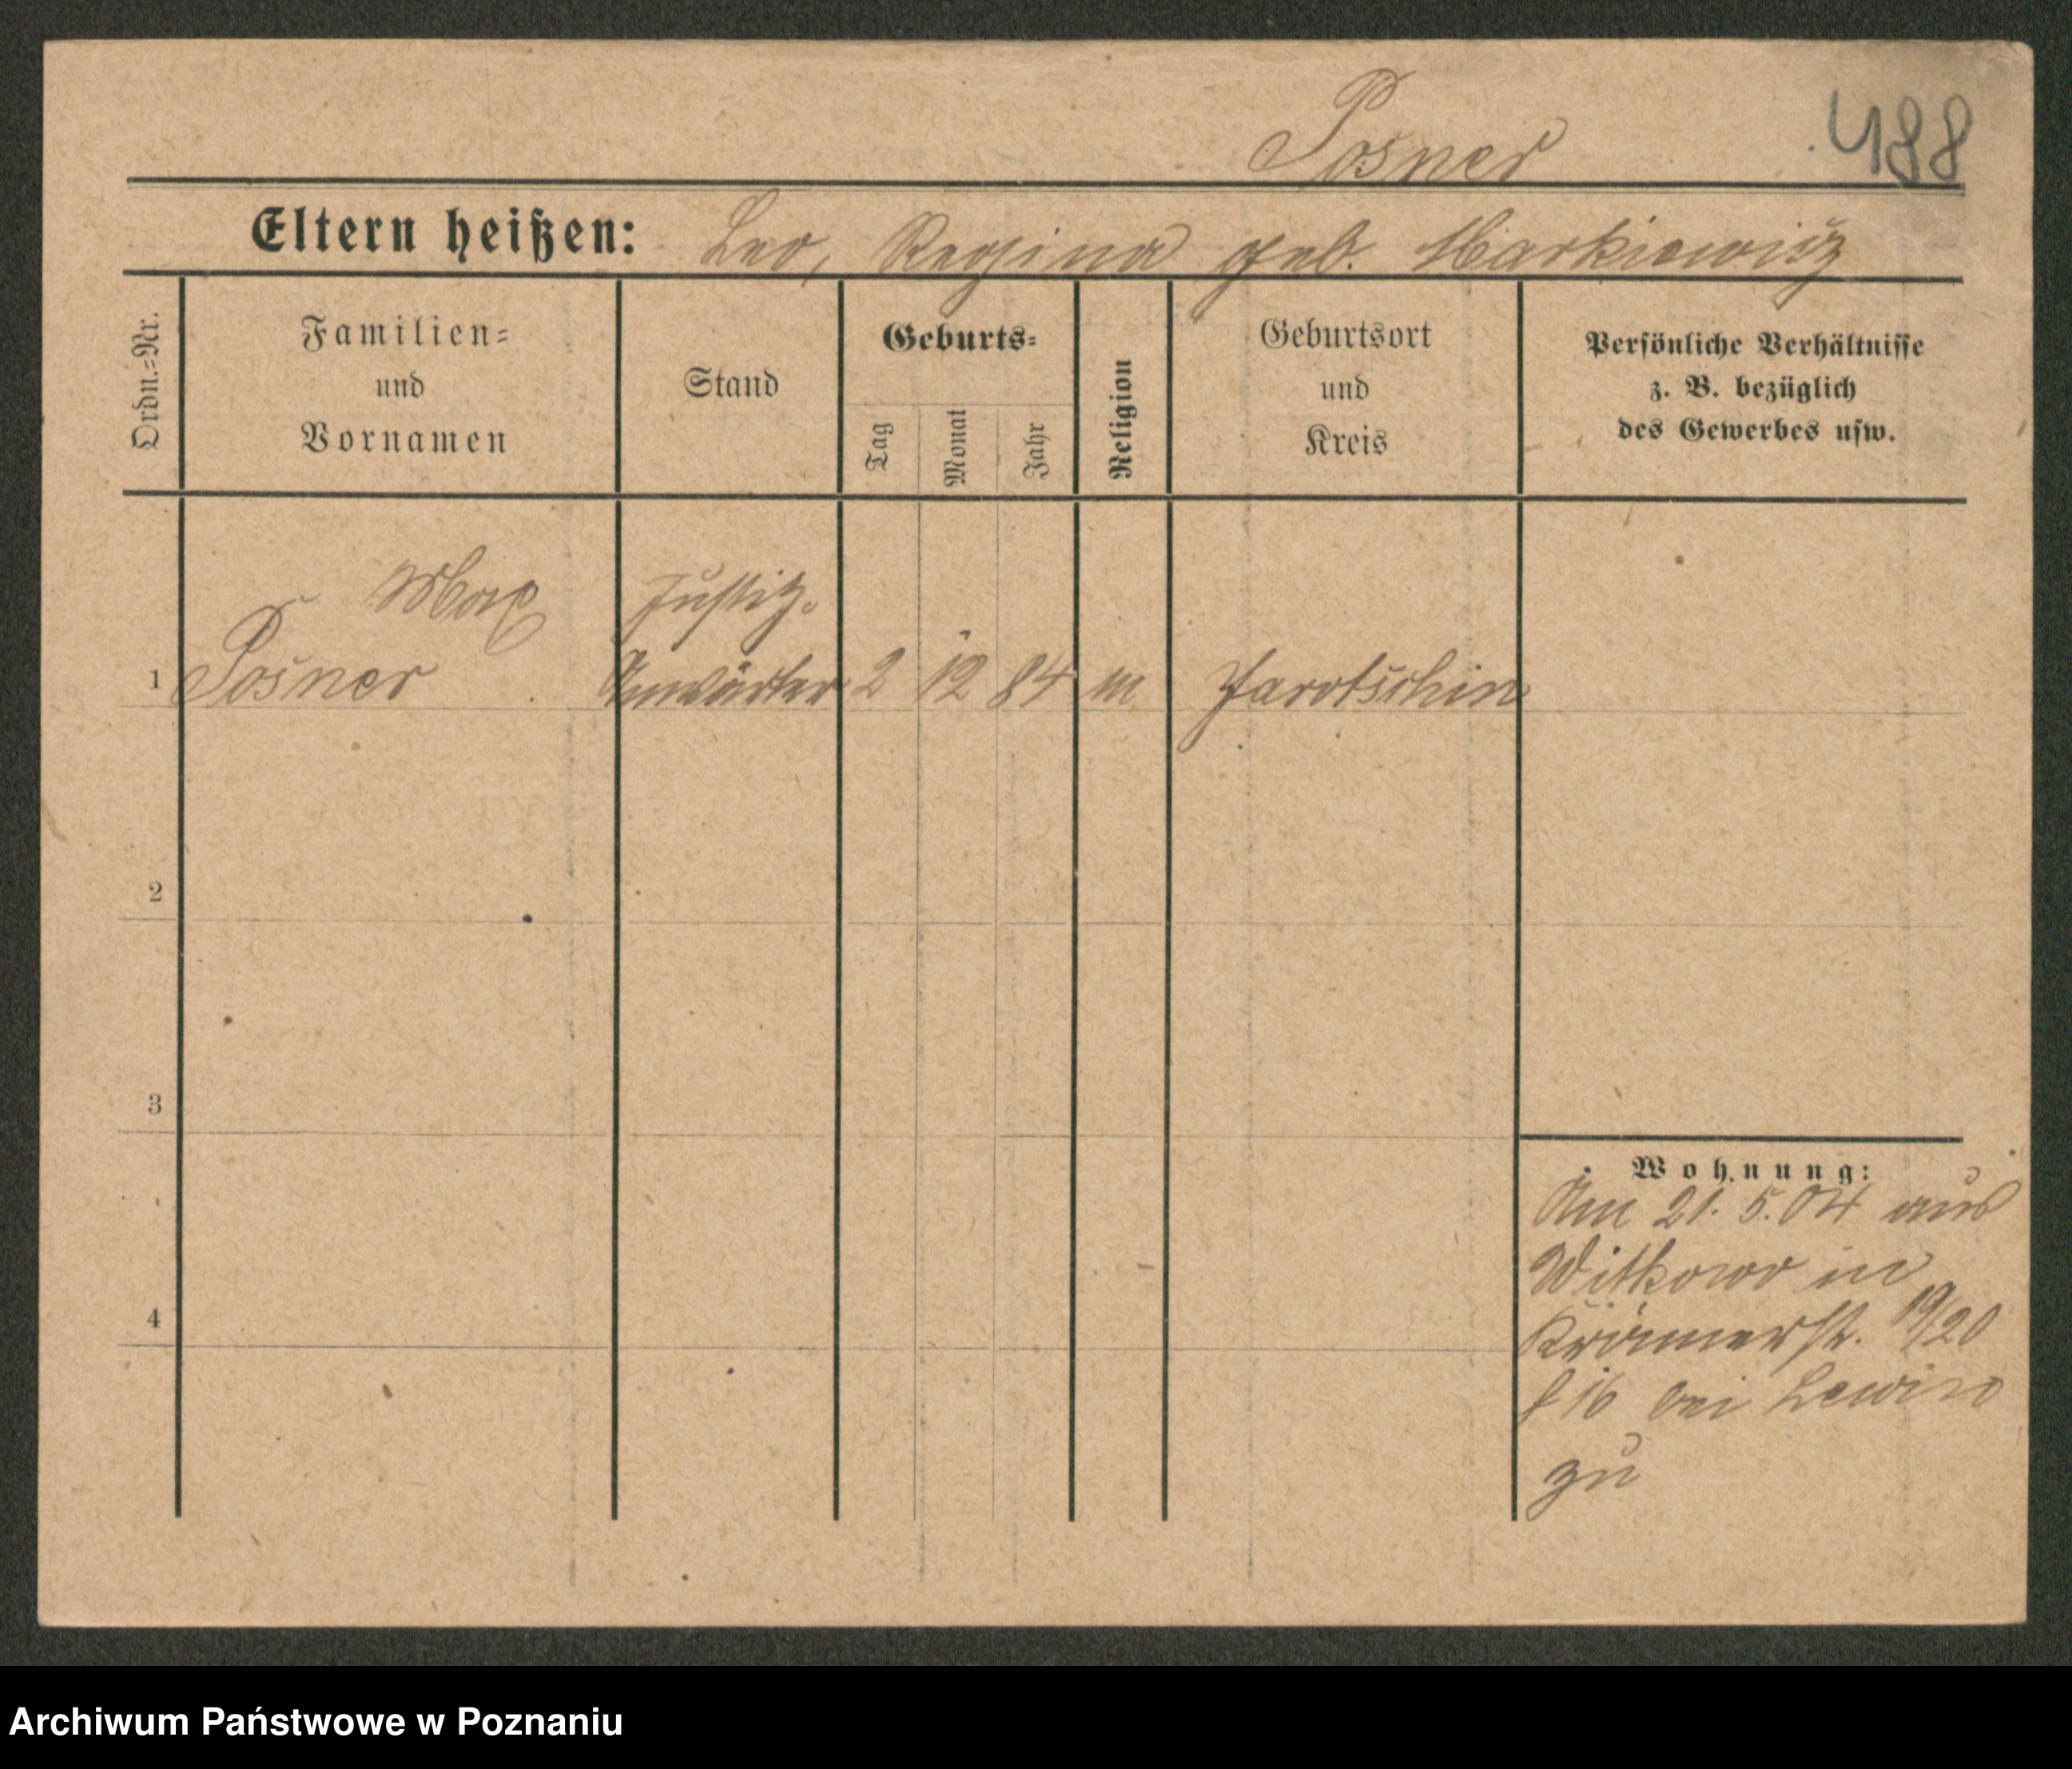 Posner 488
Eltern heißen: Leo, Regina geb. Markiewicz
Ordn.=Nr.
Familien=
und
Vornamen
Stand
Geburts=
Tag
Monat
Jahr
Religion
Geburtsort
und
Kreis
Persönliche Verhältnisse
z. B. bezüglich
des Gewerbes usw.
Max Justiz.
1 Posner Anwärter 2 12 84 m Jarotschin
2
3
4
Wohnung:
Am 21. 5. 04 aus
Witkowo in
Krämerstr. 19/20
16 bei Lewin
zu
Archiwum Państwowe w Poznaniu